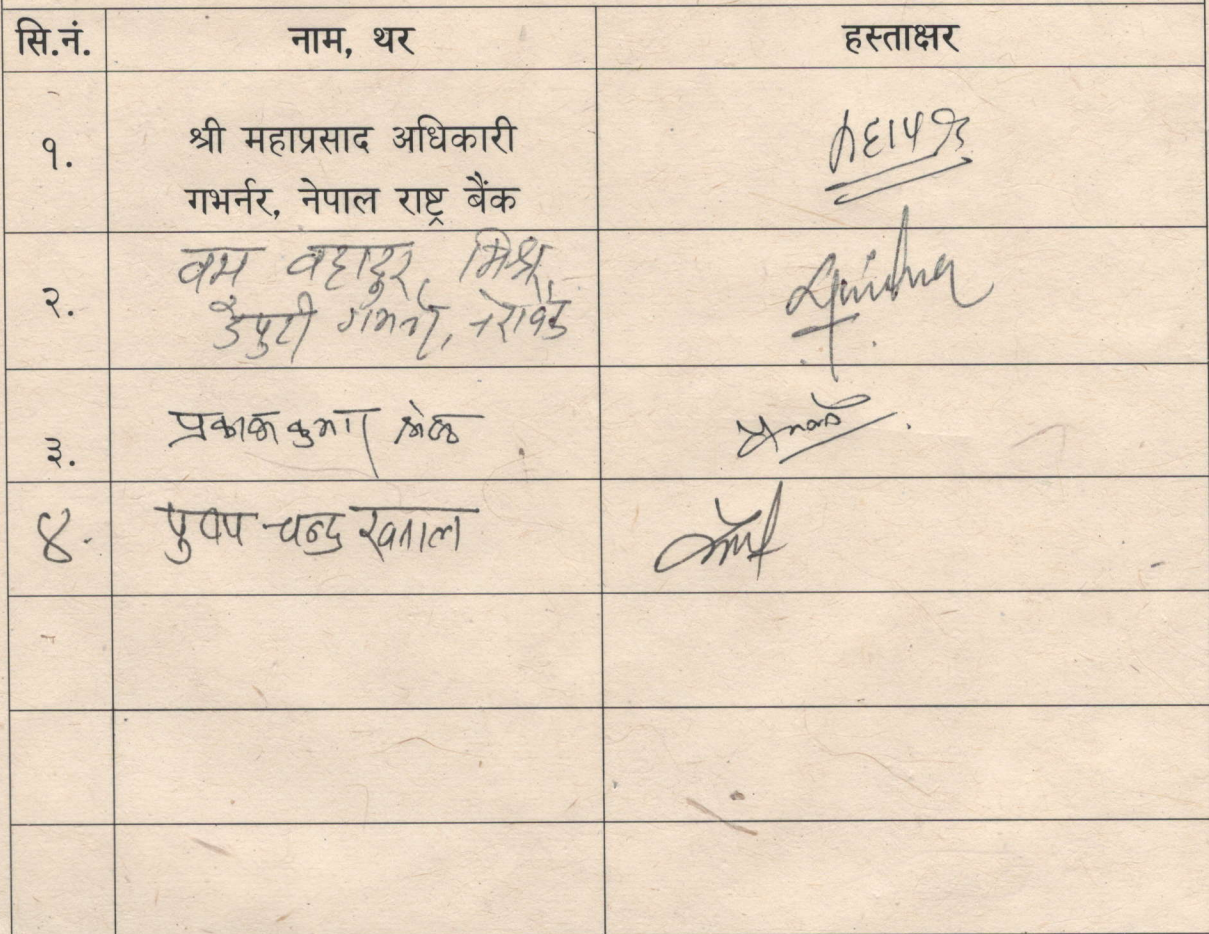 सि.नं. नाम, थर हस्ताक्षर
१. श्री महाप्रसाद अधिकारी
गभर्नर, नेपाल राष्ट्र बैंक
२. वम वहादुर मिश्र,
डेपुटी गभर्नर,
३. प्रकाश कुमार श्रेष्ठ
४. पुष्प चन्द्र खनाल